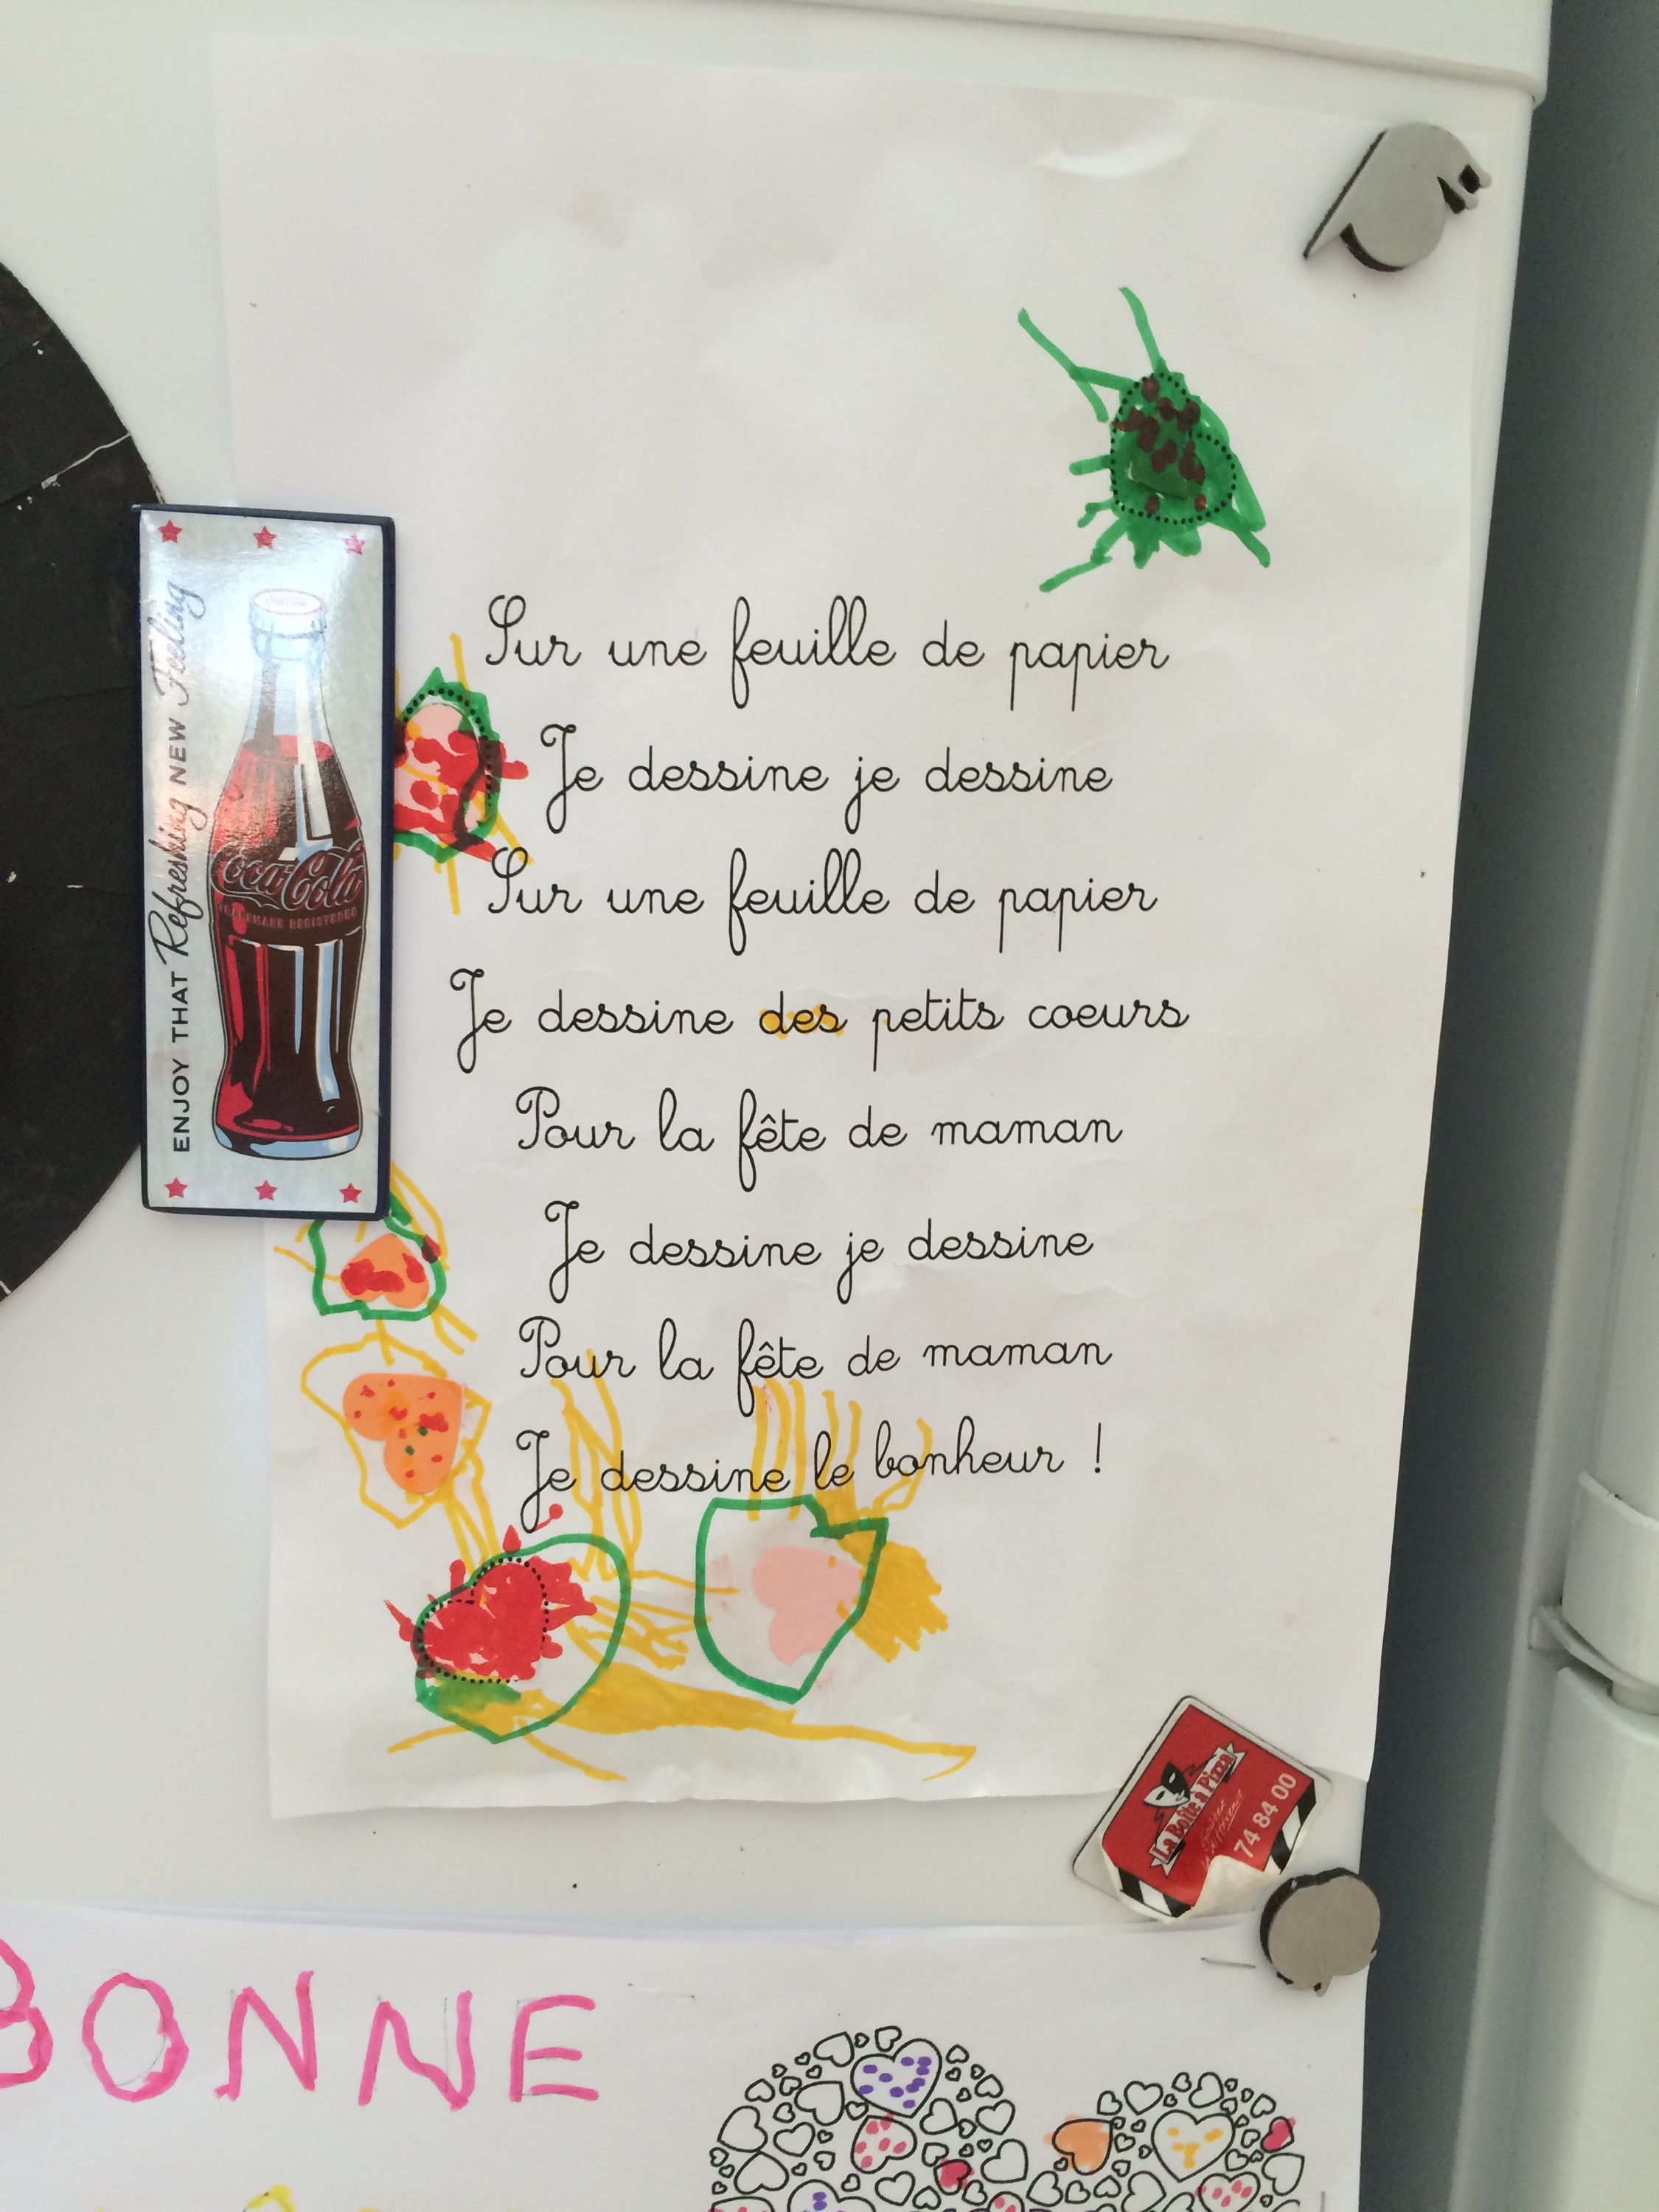 Sur une feuille de papier
Je dessine je dessine
Sur une feuille de papier
Je dessine des petits coeurs
Pour la fête de maman
Je dessine je dessine
Pour la fête de maman
Je dessine le bonheur !
ENJOY THAT Refreshing NEW Feeling
Coca-Cola
TRADEMARK REGISTERED
La Boîte à Pizza
74 84 00
BONNE